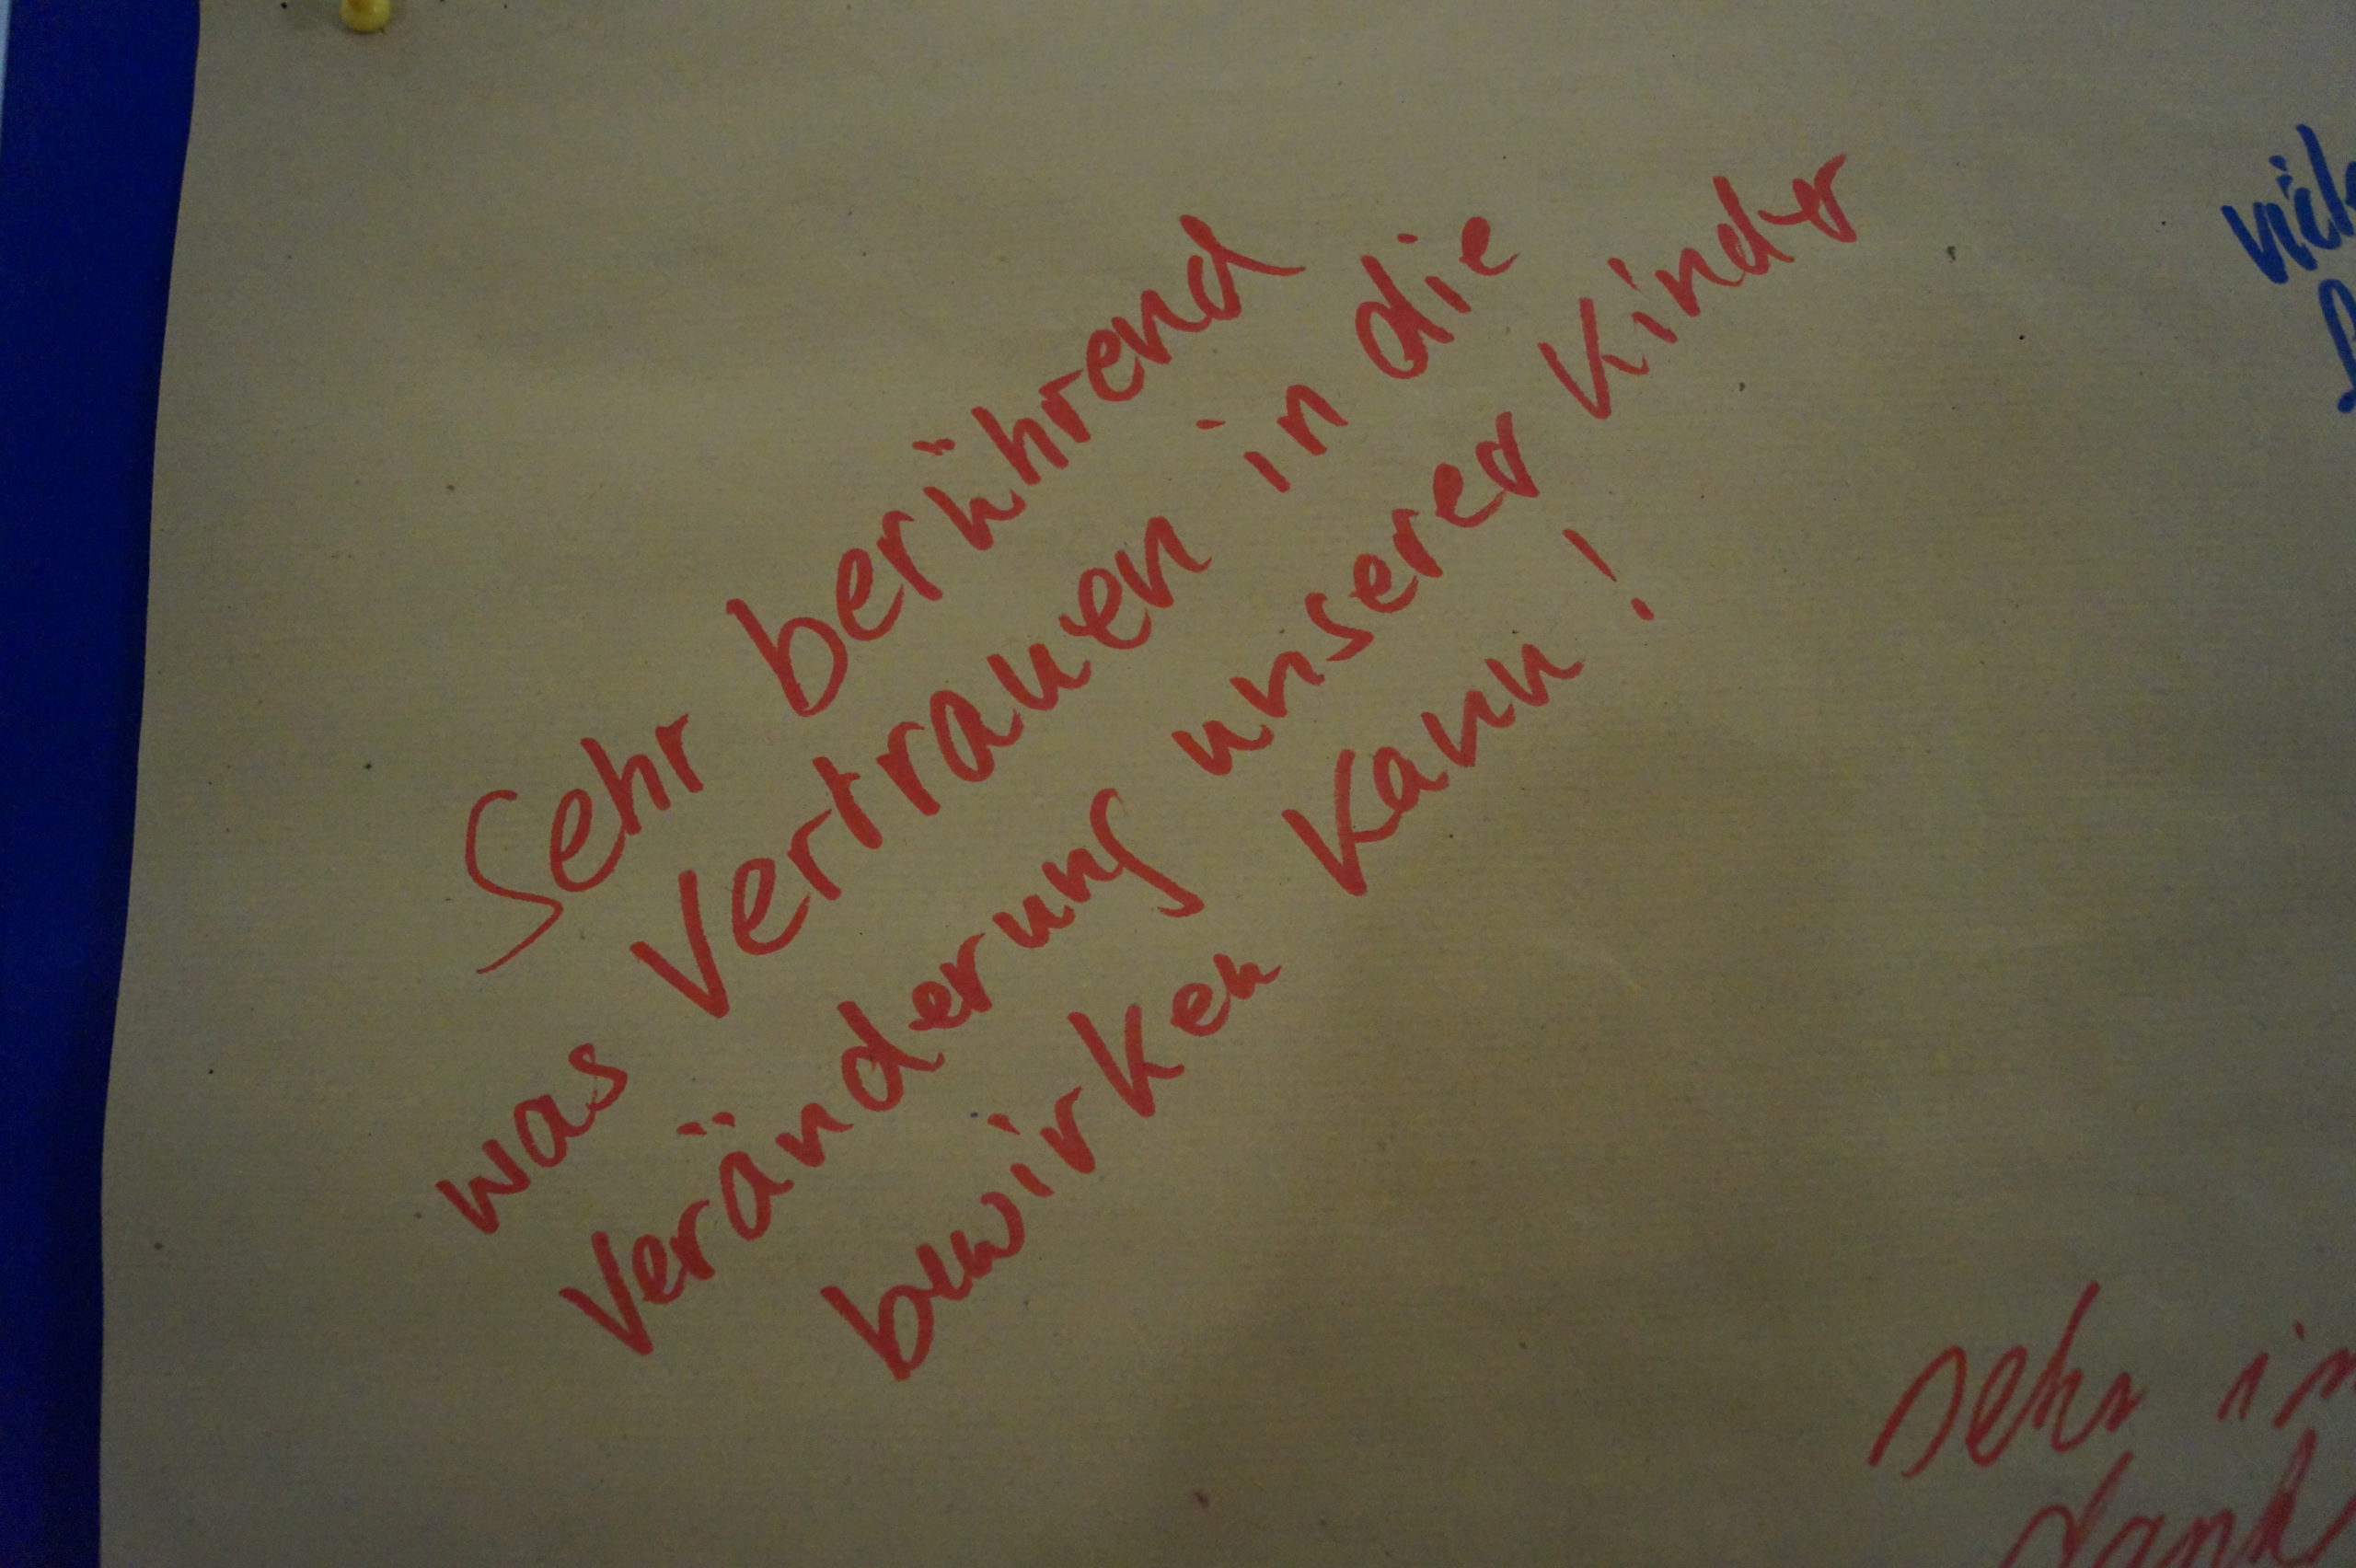 Sehr berührend
was Vertrauen in die
Veränderung unserer Kinder
bewirken kann!
sehr
dank